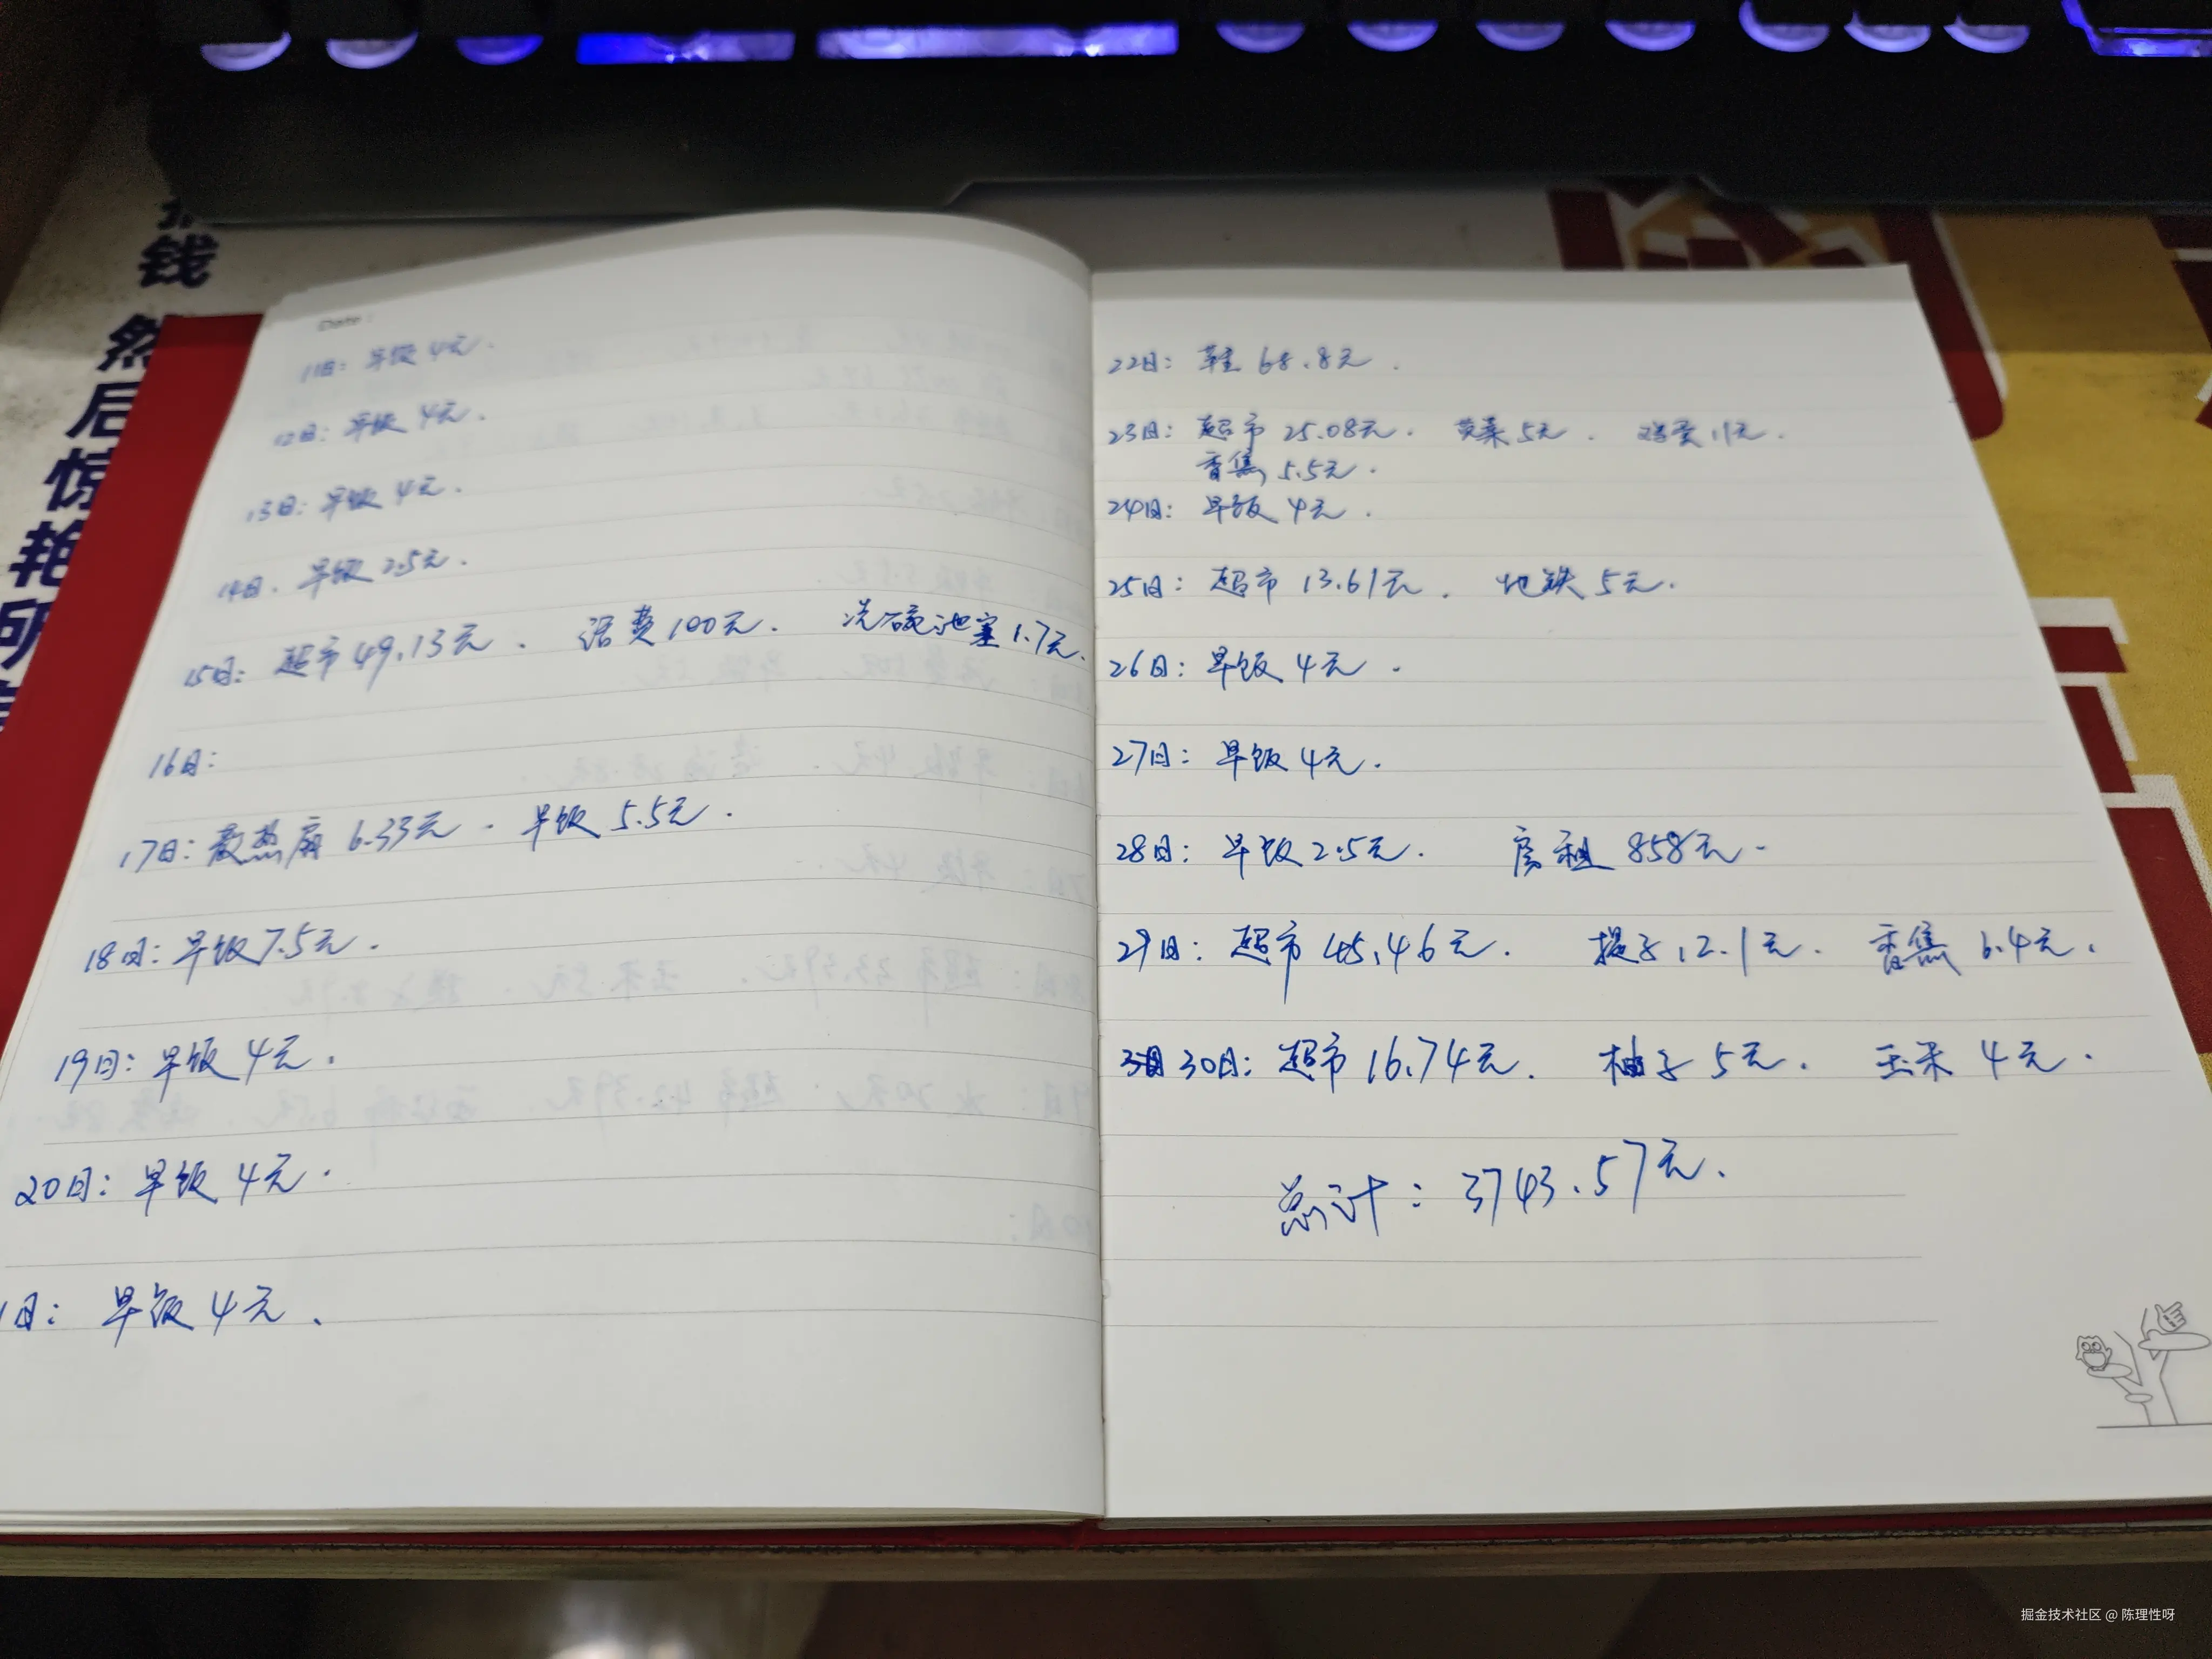 钱
然后惊艳所
Date:
11日: 早饭 4元.
12日: 早饭 4元.
13日: 早饭 4元.
14日. 早饭 2.5元.
15日: 超市 49.13元. 话费 100元. 洗碗池塞 1.7元.
16日:
17日: 散热扇 6.33元. 早饭 5.5元.
18日: 早饭 7.5元.
19日: 早饭 4元.
20日: 早饭 4元.
1日: 早饭 4元.
22日: 鞋 68.8元.
23日: 超市 25.08元. 5元. 鸡蛋 11元.
香焦 5.5元.
24日: 早饭 4元.
25日: 超市 13.61元. 地铁 5元.
26日: 早饭 4元.
27日: 早饭 4元.
28日: 早饭 2.5元. 房租 858元.
29日: 超市 45.46元. 提子 12.1元. 香焦 6.4元.
30日: 超市 16.74元. 柚子 5元. 玉米 4元.
总计: 3743.57元.
掘金技术社区 @ 陈理性呀